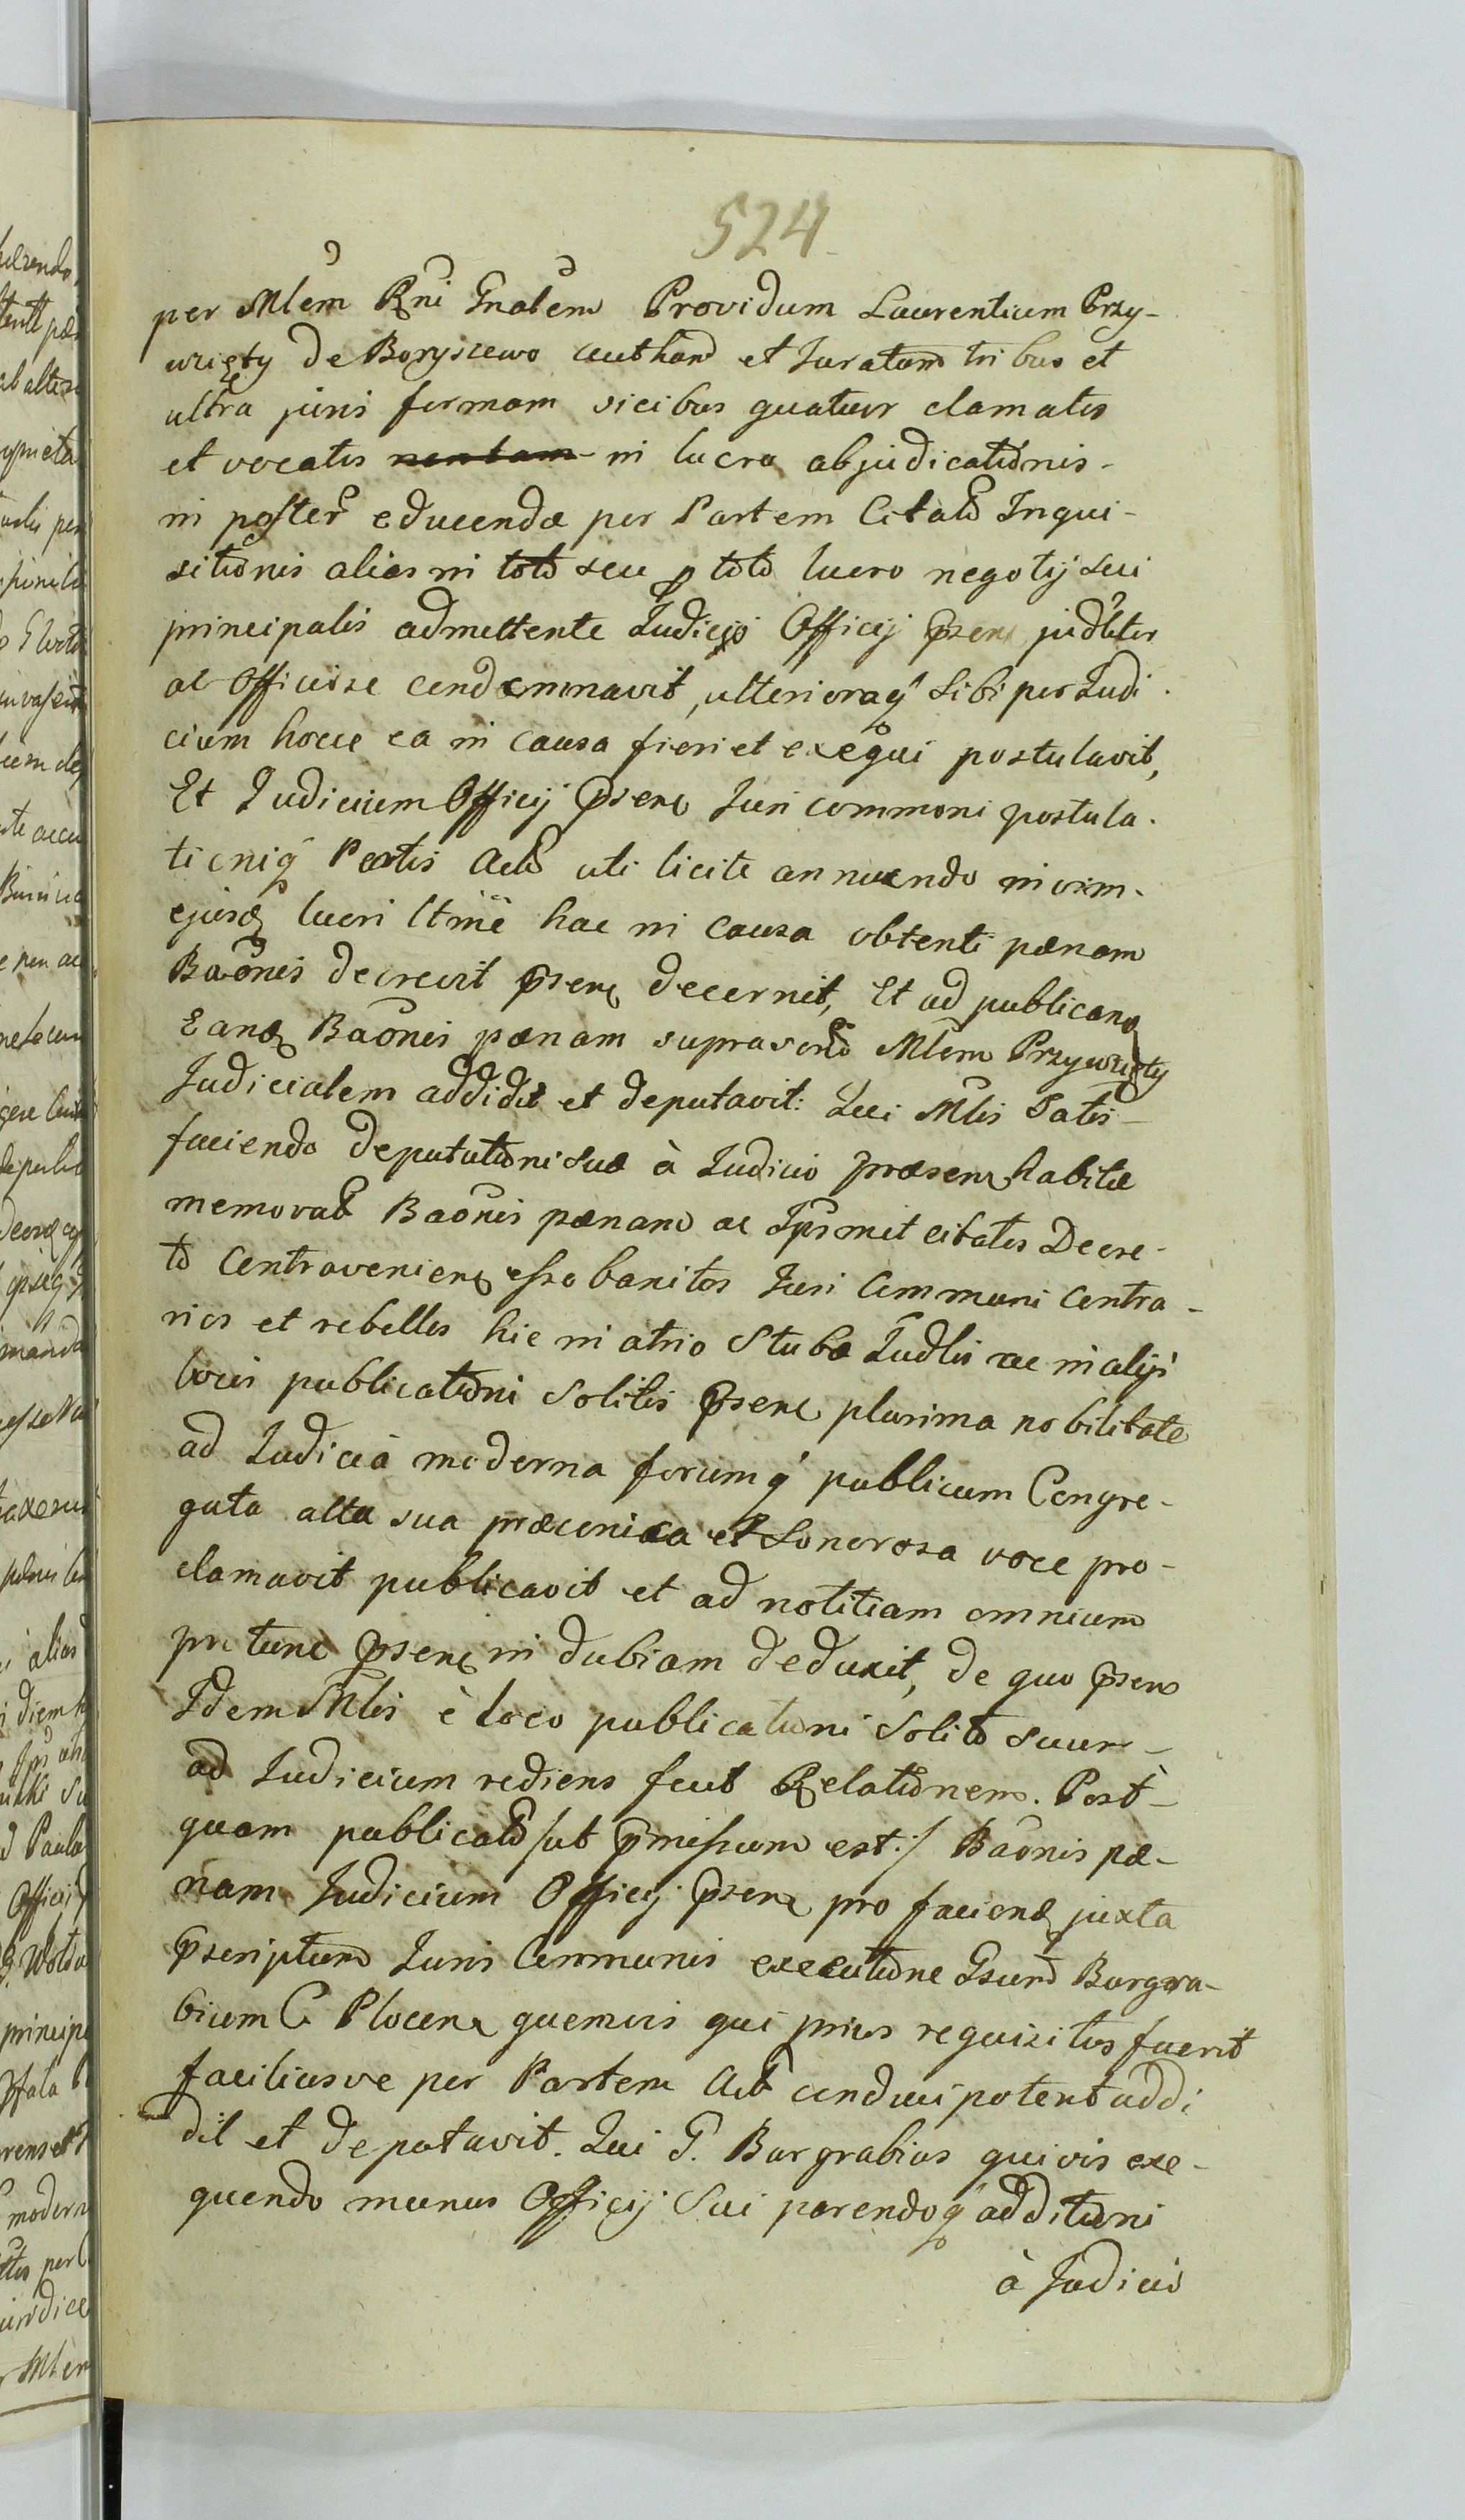 524
per Mlem Rni Gnalem Providum Laurentium Przy-
wizęty de Boryszewo authend et Juratum tribus et
ultra juris formam vicibus quatuor clamatis
et vocatis in lucro abjudicationis
in poster educenda per Partem Citatd Inqui-
sitionis alias in toto seu p toto lucro negotij sui
principalis admittente Judicijo Officij psens judlter
ac Officiose condemnavit, ulterioraq sibi per Judi
cium hocce ea in causa fieri et exequi postulavit,
Et Judicium Officij psens Juri communi postula-
tioniq Partis Act uti licite annuendo in vim
ejusd lucri ltme hac in causa obtenti pænam
Baonis decrevit psens decernit, Et ad publicand
Eand Baonis pænam supraverd Mlem Przywizęty
Judicialem addidit et deputavit: Qui Mlis Satis-
faciendo deputationi suæ à Judicio præsens habitæ
memorat Baonis pænam ac Ipsmet citatos Decre-
to Contraveniens esse banitos Juri Communi Contra-
rios et rebelles hic in atrio Stubæ Judlis ac in alijs
locis publicationi Solitis psens plurima nobilitate
ad Judicia moderna forumq publicum Congre-
gata alta sua præconica et Sonorosa voce pro-
clamavit publicavit et ad notitiam omnium
pro tunc psens in dubiam deduxit, de quo psens
Idem Mlis è loco publicationi Solito suum
ad Judicium rediens fecit Relationem. Post-
quam publicatd /ut pmissum est:/ Baonis pæ-
nam Judicium Officij psens pro faciend juxta
pscriptum Juris Communis executione Gsund Burgra-
bium C. Plocens quemvis qui prius requisitus fuerit
faciliusve per Partem Act conduci potent addi
dit et deputavit. Qui G. Burgrabius quivis exe-
quendo munus Officij Sui parendoq additioni
à Judicio